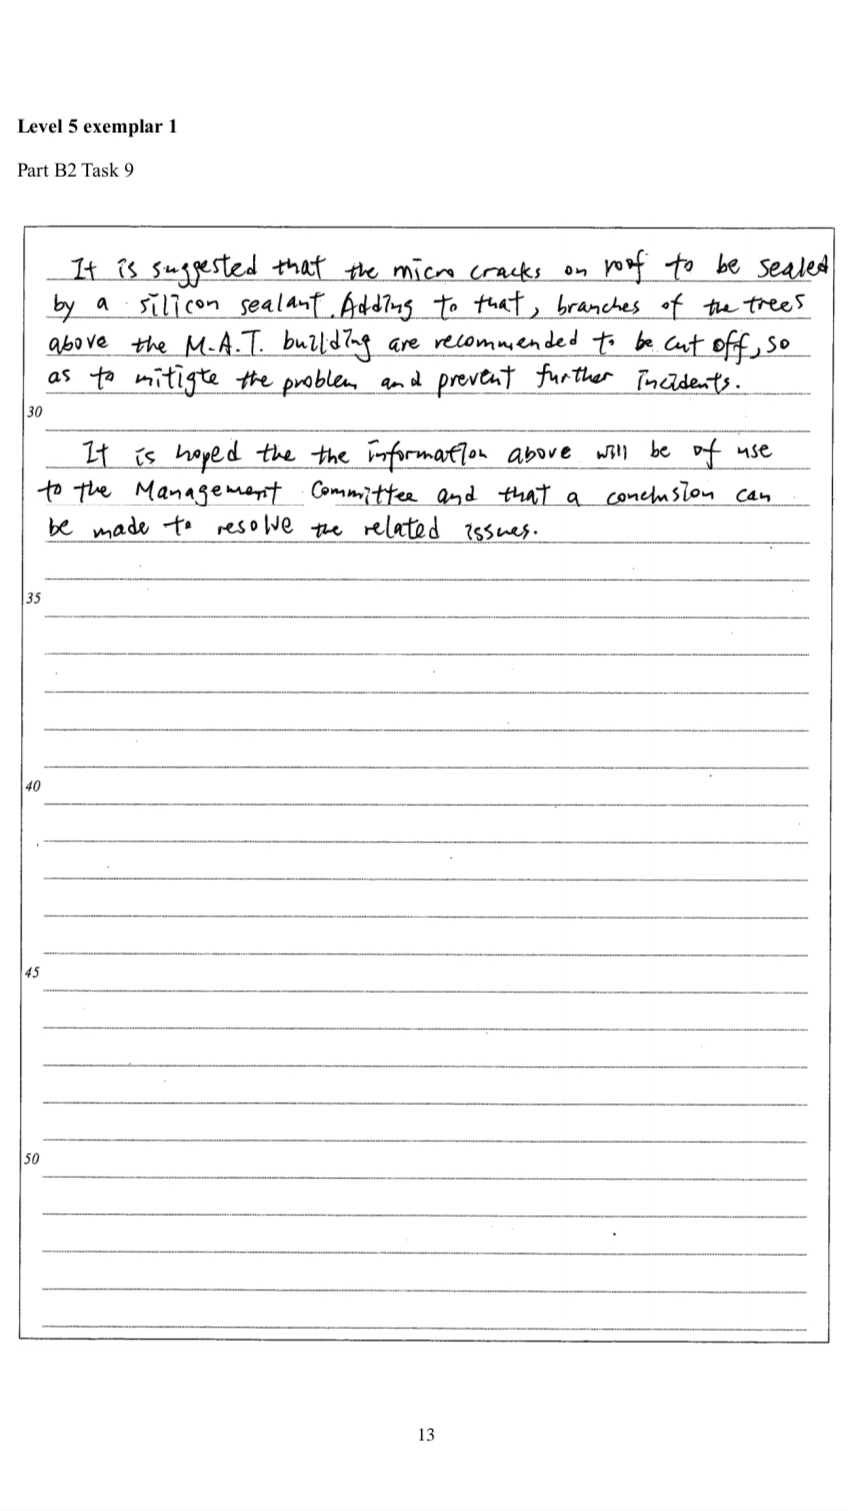 Level 5 exemplar 1
Part B2 Task 9
It is suggested that the micro cracks on roof to be sealed
by a silicon sealant. Adding to that, branches of the trees
above the M.A.T. building are recommended to be cut off, so
as to mitigte the problem and prevent further incidents.
30
It is hoped the the information above will be of use
to the Management Committee and that a conclusion can
be made to resolve the related issues.
35
40
45
50
13